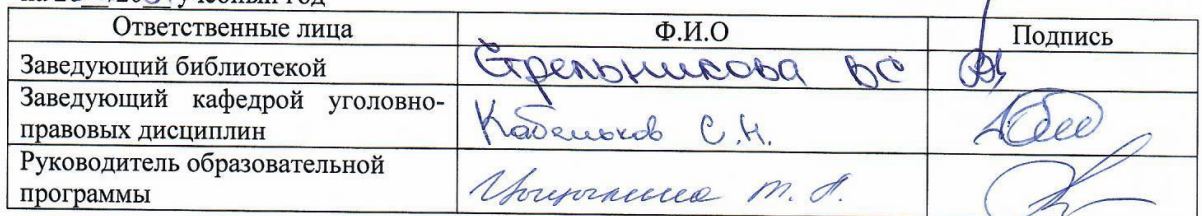 учебный год
Ответственные лица Ф.И.О Подпись
Заведующий библиотекой Стрельникова ВС
Заведующий кафедрой уголовно-
правовых дисциплин Кабельков С.Н.
Руководитель образовательной
программы М. А.